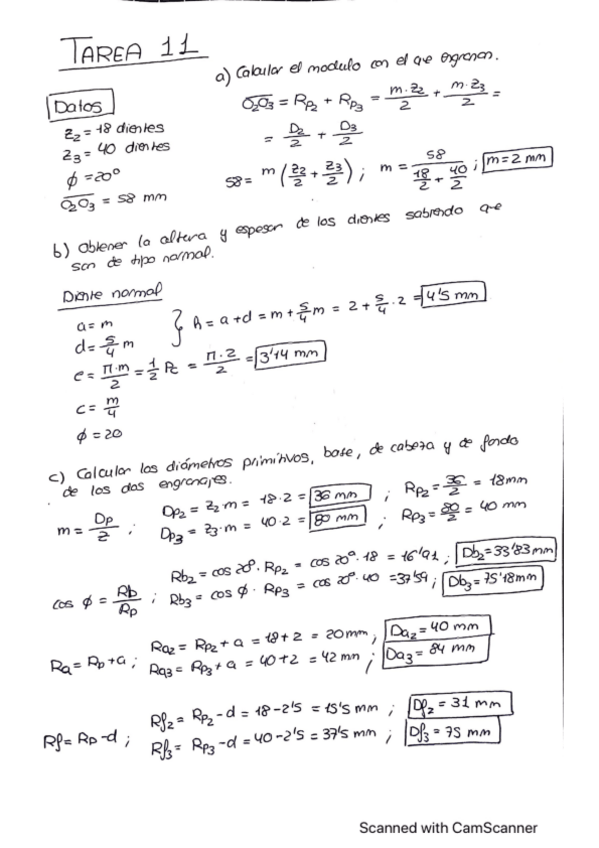 TAREA 11
a) Calcular el modulo con el que engranan.
Datos
z₂ = 18 dientes
z₃ = 40 dientes
φ = 20º
O₂O₃ = 58 mm
O₂O₃ = Rp₂ + Rp₃ = m·z₂/2 + m·z₃/2 =
= D₂/2 + D₃/2
58 = m (z₂/2 + z₃/2) ; m = 58/(18/2 + 40/2) ; m = 2 mm
b) Obtener la altura y espesor de los dientes sabiendo que
son de tipo normal.
Diente normal
a = m
d = 5/4 m
} h = a + d = m + 5/4 m = 2 + 5/4 · 2 = 4'5 mm
e = π·m/2 = 1/2 Pc = π·2/2 = 3'14 mm
c = m/4
φ = 20
c) Calcular los diámetros primitivos, base, de cabeza y de fondo
de los dos engranajes.
m = Dp/z ;
Dp₂ = z₂·m = 18·2 = 36 mm ; Rp₂ = 36/2 = 18mm
Dp₃ = z₃·m = 40·2 = 80 mm ; Rp₃ = 80/2 = 40 mm
cos φ = Rb/Rp ;
Rb₂ = cos 20º · Rp₂ = cos 20º · 18 = 16'91 ; Db₂ = 33'83 mm
Rb₃ = cos φ · Rp₃ = cos 20º · 40 = 37'59 ; Db₃ = 75'18mm
Ra = Rp + a ;
Ra₂ = Rp₂ + a = 18 + 2 = 20mm ; Da₂ = 40 mm
Ra₃ = Rp₃ + a = 40 + 2 = 42 mm ; Da₃ = 84 mm
Rf = Rp - d ;
Rf₂ = Rp₂ - d = 18 - 2'5 = 15'5 mm ; Df₂ = 31 mm
Rf₃ = Rp₃ - d = 40 - 2'5 = 37'5 mm ; Df₃ = 75 mm
Scanned with CamScanner